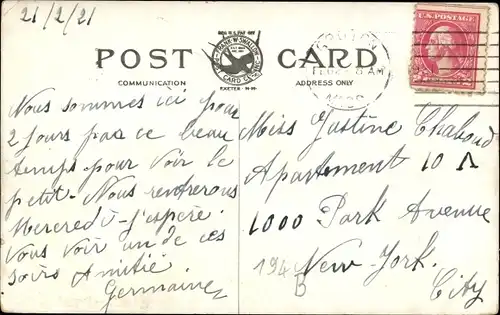 21/2/21
POST CARD
COMMUNICATION
ADDRESS ONLY
REG. U.S. PAT. OFF.
FRANK W. SWALLOW
POST CARD CO. INC.
EXETER - N.H.
U.S. POSTAGE
Nous sommes ici pour
2 jours pas ce beau
temps pour voir le
petit. Nous rentrerons
Mercredi - j'espère
Vous voir un de ces
soirs Amitié
Germaine
Miss Justine Chaboud
Apartement 10 A
1000 Park Avenue
New-York.
City
194
B